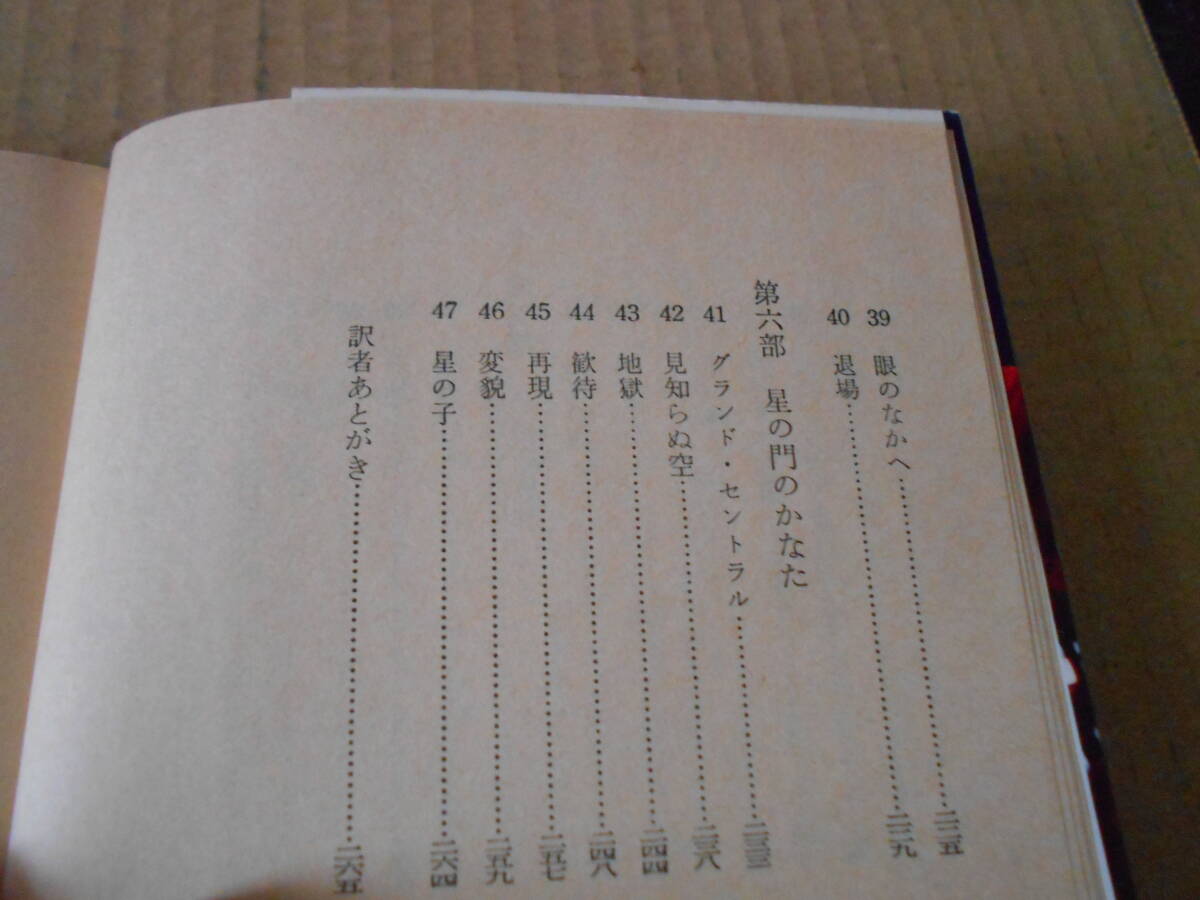 39 眼のなかへ……………………二二五
40 退場……………………二二九
第六部 星の門のかなた
41 グランド・セントラル……………………二三三
42 見知らぬ空……………………二三八
43 地獄……………………二四四
44 歓待……………………二四八
45 再現……………………二五七
46 変貌……………………二五九
47 星の子……………………二六四
訳者あとがき……………………二六五